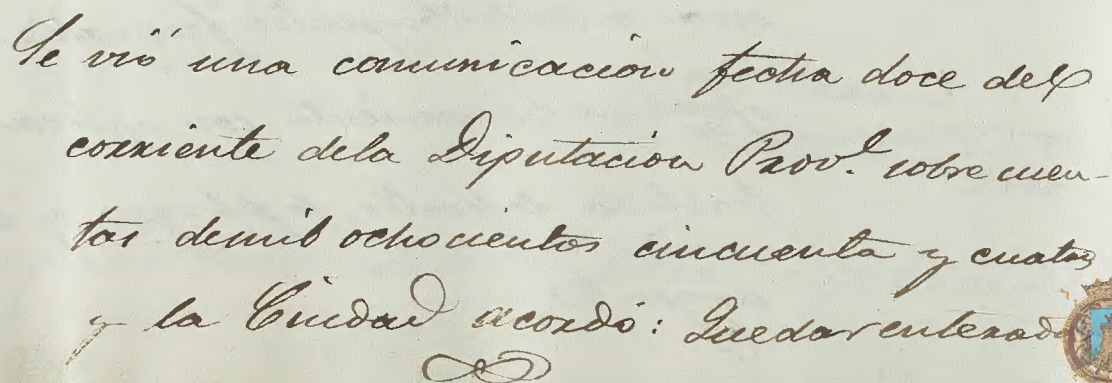 Se vió una comunicacion fecha doce del
corriente dela Diputacion Prov.l sobre cuen-
tas demil ochocientos cincuenta y cuatro
y la Ciudad acordó: Quedar enterada